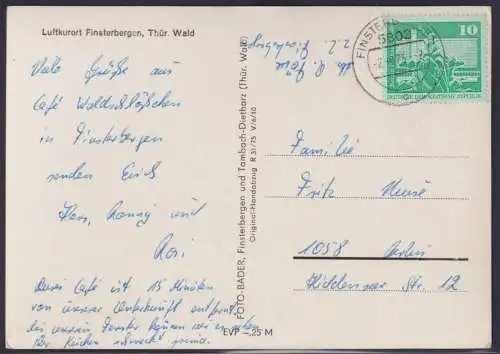 Luftkurort Finsterbergen, Thür. Wald
Viele Grüße aus
Café Waldschlößchen
in Finsterbergen
senden Euch
Hans, Conny und
Rosi
Café ist 15 Minuten
von unserer Unterkunft entfernt.
Fenster können wir es sehen
Kuchen schmeckt prima.
FOTO-BADER, Finsterbergen und Tambach-Dietharz (Thür. Wald)
Original-Handabzug R 31/75 V/6/10
EVP –,25 M
z. Z. Finsterbergen
FINSTERB
5802
10
DEUTSCHE DEMOKRATISCHE REPUBLIK
Familie
Fritz
1058 Berlin
Str. 12